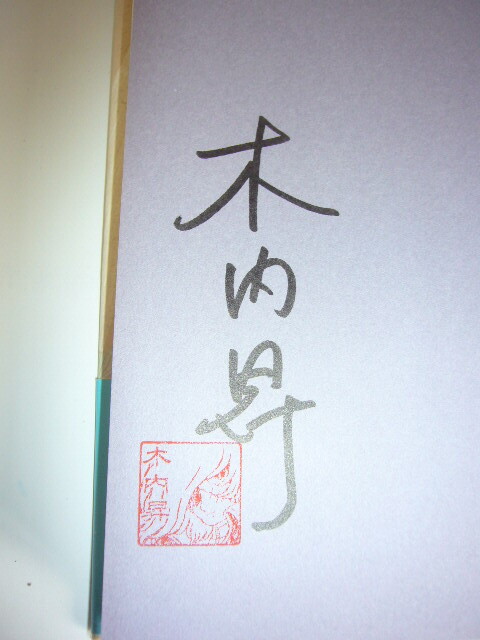 木内昇
木内昇